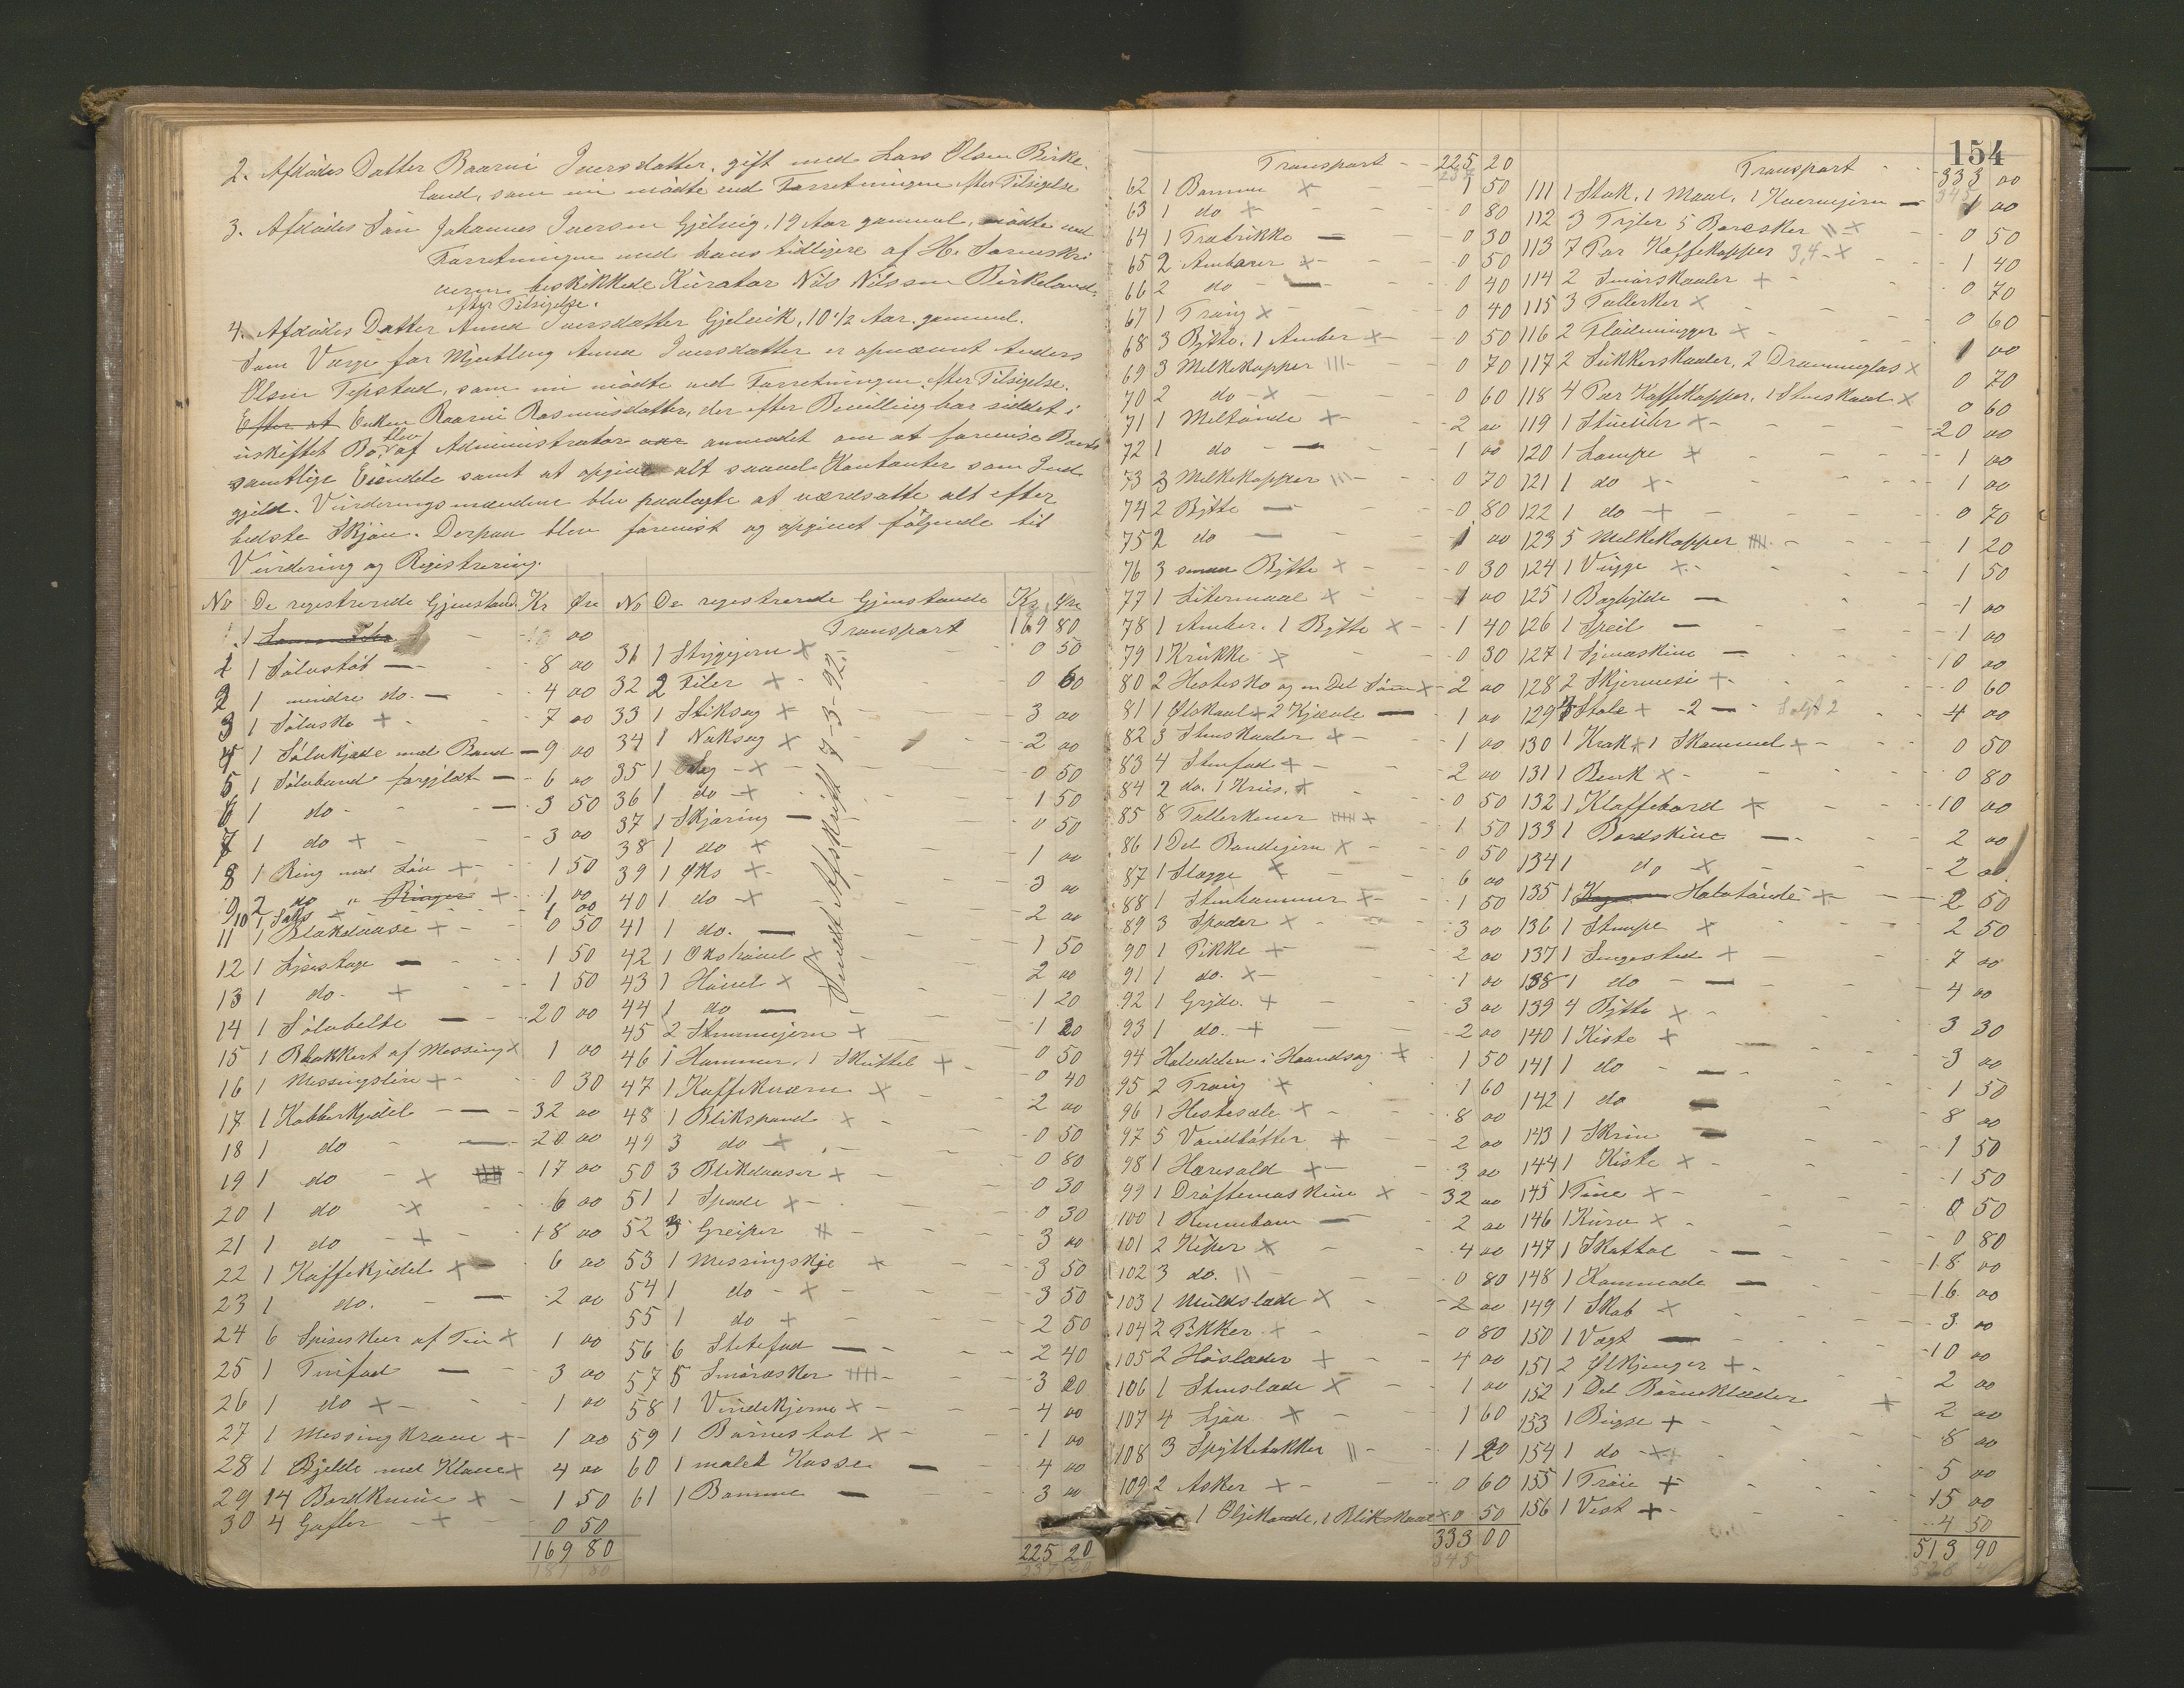 2. Afdødes Datter Baarni Iversdatter, gift med Lars Olsen Birke
land, som nu mødte ved Forretningen efter Tilsigelse
3. Afdødes Søn Johannes Iversen Gjelvig, 19 Aar gammel, mødte ved
Forretningen med hans tidligere af H. Sorenskri
veren beskikkede Kurator Nils Nilssen Birkeland,
efter Tilsigelse.
4. Afdødes Datter Anna Iversdatter Gjelvik, 10 1/2 Aar gammel.
Som Verge for Myndtling Anna Iversdatter er opnævnt Anders
Olsen Tepstad, som nu mødte ved Forretningen efter Tilsigelse.
Efter at Enken Baarni Rasmusdatter, der efter Bevilling har siddet i
uskiftet Bo, blev af Administrator var anmodet om at forevise Boets
samtlige Eiendele samt at opgive alt saavel Kontanter som Ind
gjeld. Vurderingsmændene blev paalagte at værdsætte alt efter
bedste Skjøn. Derpaa blev forevist og opgivet følgende til
Vurdering og Registrering.
No De registrerede Gjenstande Kr Øre
1 1 Sølvstøb — 8 00
2 1 mindre do. — 4 00
3 1 Sølvske + 7 00
4 1 Sølvkjæde med Baand — 9 00
5 1 Sølvbaand forgyldt — 6 00
6 1 do — 3 50
7 1 do + 3 00
8 1 Ring med Løv + 1 50
9 2 do " Ringer + 1 00
10 1 Saks + 1 00
11 1 Blækdaase + 0 50
12 1 Lysestage — 1 50
13 1 do + 1 50
14 1 Sølvbelte — 20 00
15 1 Blakkert af Messing x 1 00
16 1 Messingsline + 0 30
17 1 Kobberkjedel — 32 00
18 1 do — 20 00
19 1 do + 17 00
20 1 do x 6 00
21 1 do + 18 00
22 1 Kaffekjedel x 6 00
23 1 do. — 2 00
24 6 Spiseskeer af Tin x 1 00
25 1 Tinfad — 3 00
26 1 do + 1 00
27 1 Messingkrane + 1 00
28 1 Bjelde med Klave x 4 00
29 14 Bordknive x 1 50
30 4 Gafler + 0 50
169 80
187 80
No De registrerede Gjenstande Kr. Øre
Transport 169 80
31 1 Strygejern x 0 50
32 2 Filer + 0 60
33 1 Stiksag + 3 00
34 1 Naksag x 2 00
35 1 Sag x 0 50
36 1 do + 1 50
37 1 Skjæring — 0 50
38 1 do + 1 00
39 1 Øks + 3 00
40 1 do x 2 00
41 1 do. — 1 50
42 1 Økshøvel x 2 00
43 1 Høvel x 1 20
44 1 do — 1 20
45 2 Stemmejern x 0 50
46 1 Hammer, 1 Skuttel + 0 40
47 1 Kaffekværn x 2 00
48 1 Blikspand x 0 50
49 3 do + 0 80
50 3 Blikdaaser x 0 30
51 1 Spade x 0 30
52 3 Greiper 3 00
53 1 Messingskje x 3 50
54 1 do x 3 50
55 1 do + 2 50
56 6 Stetefad — 2 40
57 5 Smøræsker 3 00
58 1 Vindekjerne x 4 00
59 1 Barnestol x 1 00
60 1 malet Kasse — 4 00
61 1 Bomme — 3 00
225 20
Sendt Afskrift 7-3-92.
154
Transport 225 20
62 1 Bomme x 1 50
63 1 do + 0 80
64 1 Træbrikke — 0 30
65 2 Ambarer x 0 50
66 2 do — 0 40
67 1 Traug x 0 40
68 3 Bytte, 1 Amber x 0 50
69 3 Melkekopper III 0 70
70 2 do x 0 60
71 1 Meltønde + 2 00
72 1 do — 1 00
73 3 Melkekopper III 0 70
74 2 Bytte — 0 80
75 2 do — 1 00
76 3 smaa Bytte x 0 30
77 1 Litermaal x 1 00
78 1 Amber, 1 Bytte x 1 40
79 1 Krukke x 0 30
80 2 Hestesko og en Del Søm x 2 00
81 1 Ølskaal + 2 Kjævle — 1 00
82 3 Stenskaaler + 1 00
83 4 Stenfad + 2 00
84 2 do. 1 Krus. x 0 50
85 8 Tallerkener x 1 50
86 1 Del Baandjern x 0 50
87 1 Slægge x 6 00
88 1 Stenhammer x 1 50
89 3 Spader x 3 00
90 1 Pikke + 2 00
91 1 do. x 1 00
92 1 Gryde. + 3 00
93 1 do. + 2 00
94 Halvdelen i Haandsag + 1 50
95 2 Traug x 1 60
96 1 Hestesale x 8 00
97 5 Vandbøtter + 2 00
98 1 Haresold + 3 00
99 1 Drøftemaskine x 32 00
100 1 Rennebom — 2 00
101 2 Kiper x 4 00
102 3 do. II 0 80
103 1 Muldslæde x 2 00
104 2 Pikker + 0 80
105 2 Høslæder + 4 00
106 1 Stenslæde x 1 00
107 4 Ljaa x 1 60
108 3 Spyttebakker II 1 20
109 2 Asker + 0 60
1 Oljekande, 1 Blikskaal x 0 50
333 00
345
Transport 333 00
345
111 1 Stak, 1 Maal, 1 Kvernjern — 1 00
112 3 Tryler 5 Boræsker II x 0 50
113 7 Par Kaffekopper 3,4 x 1 40
114 2 Smørskaaler + 0 70
115 3 Tallerker x 0 60
116 2 Flødemugger x 1 00
117 2 Sukkerskaaler, 2 Dramneglas x 0 70
118 4 Par Kaffekopper, 1 Stenskaal x 0 60
119 1 Stueuhr x 20 00
120 1 Lampe x 1 00
121 1 do x 1 00
122 1 do + 0 70
123 5 Melkekopper 1 20
124 1 Vugge x 1 50
125 1 Baghylde — 1 00
126 1 Speil — 1 00
127 1 Symaskine — 10 00
128 2 Skjermesi + 0 60
129 Stole + 2 — Solgt 2 4 00
130 1 Krak + 1 Skammel + 0 50
131 1 Benk x 0 80
132 1 Klaffebord x 10 00
133 1 Bordskive — 2 00
134 1 do x 2 00
135 1 Halvtønde + 2 50
136 1 Stampe x 2 50
137 1 Sengested + 7 00
138 1 do — 4 00
139 4 Bytte x 3 30
140 1 Kiste + 3 00
141 1 do — 1 50
142 1 do — 8 00
143 1 Skrin — 1 50
144 1 Kiste x 1 50
145 1 Tine x 0 50
146 1 Kurv x 0 80
147 1 Skattol — 18 00
148 1 Kommode — 16 00
149 1 Skab x 3 00
150 1 Vægt — 10 00
151 2 Ølkjenger + 2 00
152 1 Del Barneklæder x 2 00
153 1 Buxse + 8 00
154 1 do x 5 00
155 1 Trøie + 15 00
156 1 Vest + 4 50
513 90